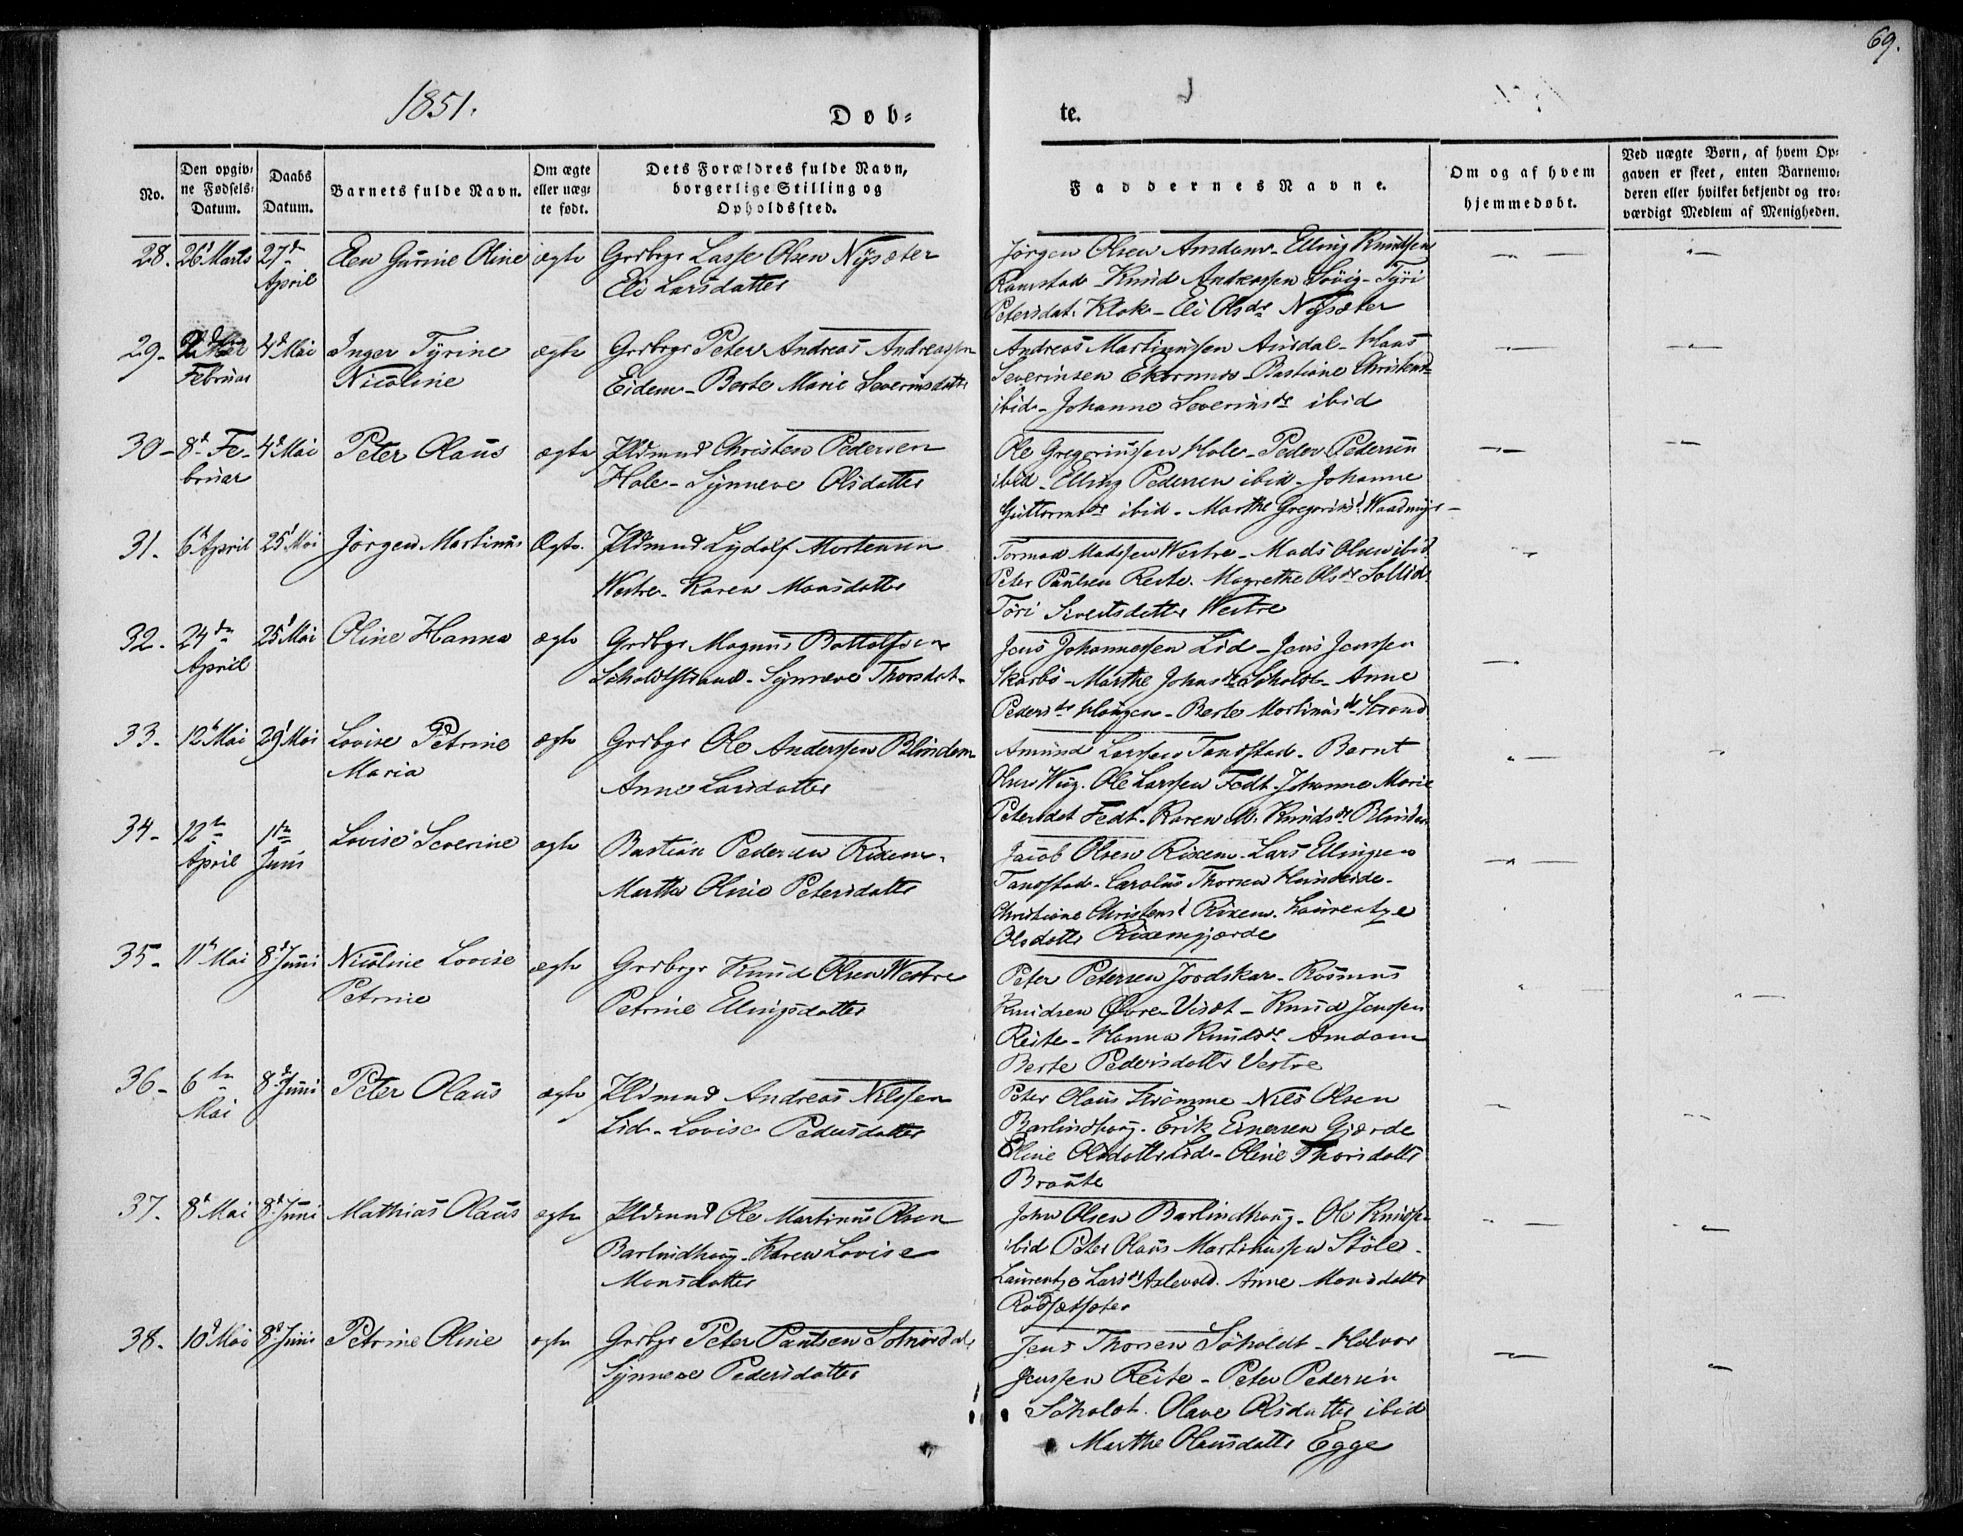 69.
1851.
Døb-
te.
No.
Den opgiv-
ne Fødsels-
Datum.
Daabs
Datum.
Barnets fulde Navn.
Om ægte
eller uæg-
te født.
Dets Forældres fulde Navn,
borgerlige Stilling og
Opholdssted.
Faddernes Navne.
Om og af hvem
hjemmedøbt.
Ved uægte Børn, af hvem Op-
gaven er skeet, enten Barnemo-
deren eller hvilket bekjendt og tro-
værdigt Medlem af Menigheden.
28. 26d Marts 27de Elen Gurine Oline ægte Grdbrgr Lasse Olsen Nysæter
April Eli Larsdatter
Jørgen Olsen Amdam - Elling Knudsen
Ramstad - Knud Andreassen Søvig - Tyri
Petersdat. Klok - Eli Olsdr Nysæter
29. 4d Mai Inger Tyrine ægte Grdbrgr Peter Andreas Andreassen
Februar Nicoline Eidem - Berte Marie Severinsdatter
Andreas Martinussen Aursdal - Claus
Severinsen Ekornnæs - Bastiane Christensd
ibid - Johanne Severinsdr ibid
30 - 8d Fe- 4d Mai Peter Olaus ægte Pldmnd Christen Pedersen
bruar Hole - Synneve Olsdatter
Ole Gregoriussen Hole - Peder Pedersen
ibid - Elling Pedersen ibid - Johanne
Guttormsdr ibid - Marthe Gregoriusd. Waadmyr -
31. 6d April 25d Mai Jørgen Martinus Ægte. Pldmnd Lydolf Mortensen
Westre - Karen Monsdatter
Tormod Madssen Westre - Mads Olsen ibid.
Peter Paulsen Reite. Magrethe Olsdr Sollid
Tøri Sivertsdatter Westre
32. 24de 25d Mai Oline Hanna ægte Grdbgr Magnus Bottolfsen
April Søholdtstrand - Synneve Thorsdat.
Jens Johannessen Lid - Jens Jenssen
Skarbø - Marthe Johnsdr Søholdt - Anne
Pedersdr Haugen - Berte Martinusdr Strand
33. 12d Mai 29d Mai Lovise Petrine ægte Grdbgr Ole Anderssen Blindem
Maria Anne Larsdatter
Amund Larssen Tandstad - Bernt
Olsen Wiig. Ole Larssen Fedt. Johanne Marie
Petersdat Fedt - Karen M. Knudsdr Blindem
34 - 12te 1te Lovise Severine ægte Bastian Pedersen Rixem.
April Juni Marthe Oline Petersdatter
Jacob Olsen Rixem - Lars Ellingsen
Tandstad - Carolus Thorsen Hundeide -
Christiane Christensd Rixem. Laurentze
Olsdatter Rixemgjærde
35 - 11d Mai 8d Juni Nicoline Lovise ægte Grdbrgr Knud Olsen Westre
Petrine Petrine Ellingsdatter
Peter Petersen Jordskar - Rasmus
Knudsen Øvre-Viset - Knud Jenssen
Reite - Hanna Knudsdr Amdam
Berte Pedersdatter Vestre
36 - 6te 8d Juni Peter Olaus ægte Pldmnd Andreas Nilssen
Mai Lid - Lovise Pedersdatter
Peter Olaus Strømme - Nils Olsen
Barlindhoug. Erik Einersen Gjærde
Oline Olsdatter Lid - Oline Thorsdatter
Braute
37. 8d Mai 8d Juni Mathias Olaus ægte Pldmnd Ole Martinus Olsen
Barlindhoug - Karen Lovise
Monsdatter
John Olsen Barlindhoug - Ole Knudsen
ibid Peter Olaus Martinussen Støle -
Laurentze Larsdr Aslevold. Anne Monsdatter
Rødsætsæter
38. 10d Mai 8d Juni Petrine Oline ægte Grdbgr Peter Paulsen Solnørdal
Synneve Pedersdatter
Jens Thorsen Søholdt - Halvor
Jenssen Reite - Peter Petersen
Søholdt. Olave Olsdatter ibid
Marthe Olausdatter Egge